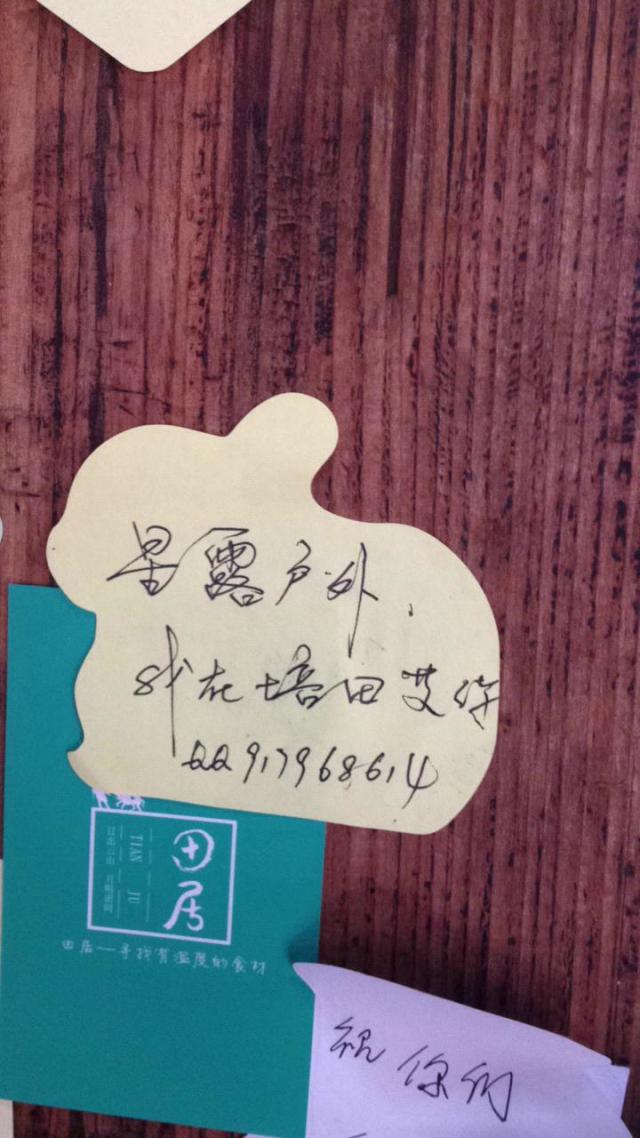 星露户外.
我在培田艾
QQ917968614
田居
TIAN JU
田居—寻找有温度的食材
祝你们